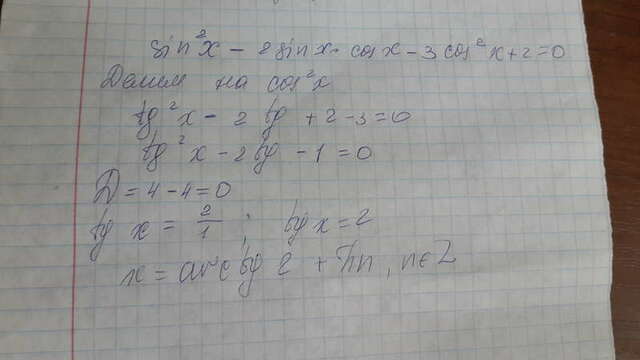 sin²x - 2sinx·cosx - 3cos²x + 2 = 0
Делим на cos²x
tg²x - 2tg + 2 - 3 = 0
tg²x - 2tg - 1 = 0
D = 4 - 4 = 0
tg x = 2/1 ; tg x = 2
x = arctg 2 + πn, n∈Z